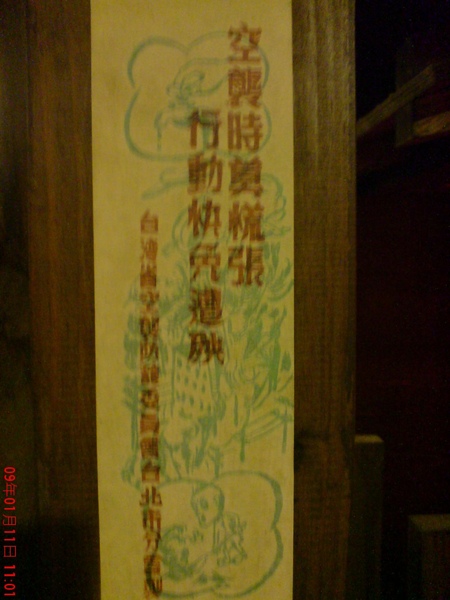 空襲時莫慌張
行動快免遭殃
台灣省空襲防護委員會台北市分會製
09年01月11日 11:01